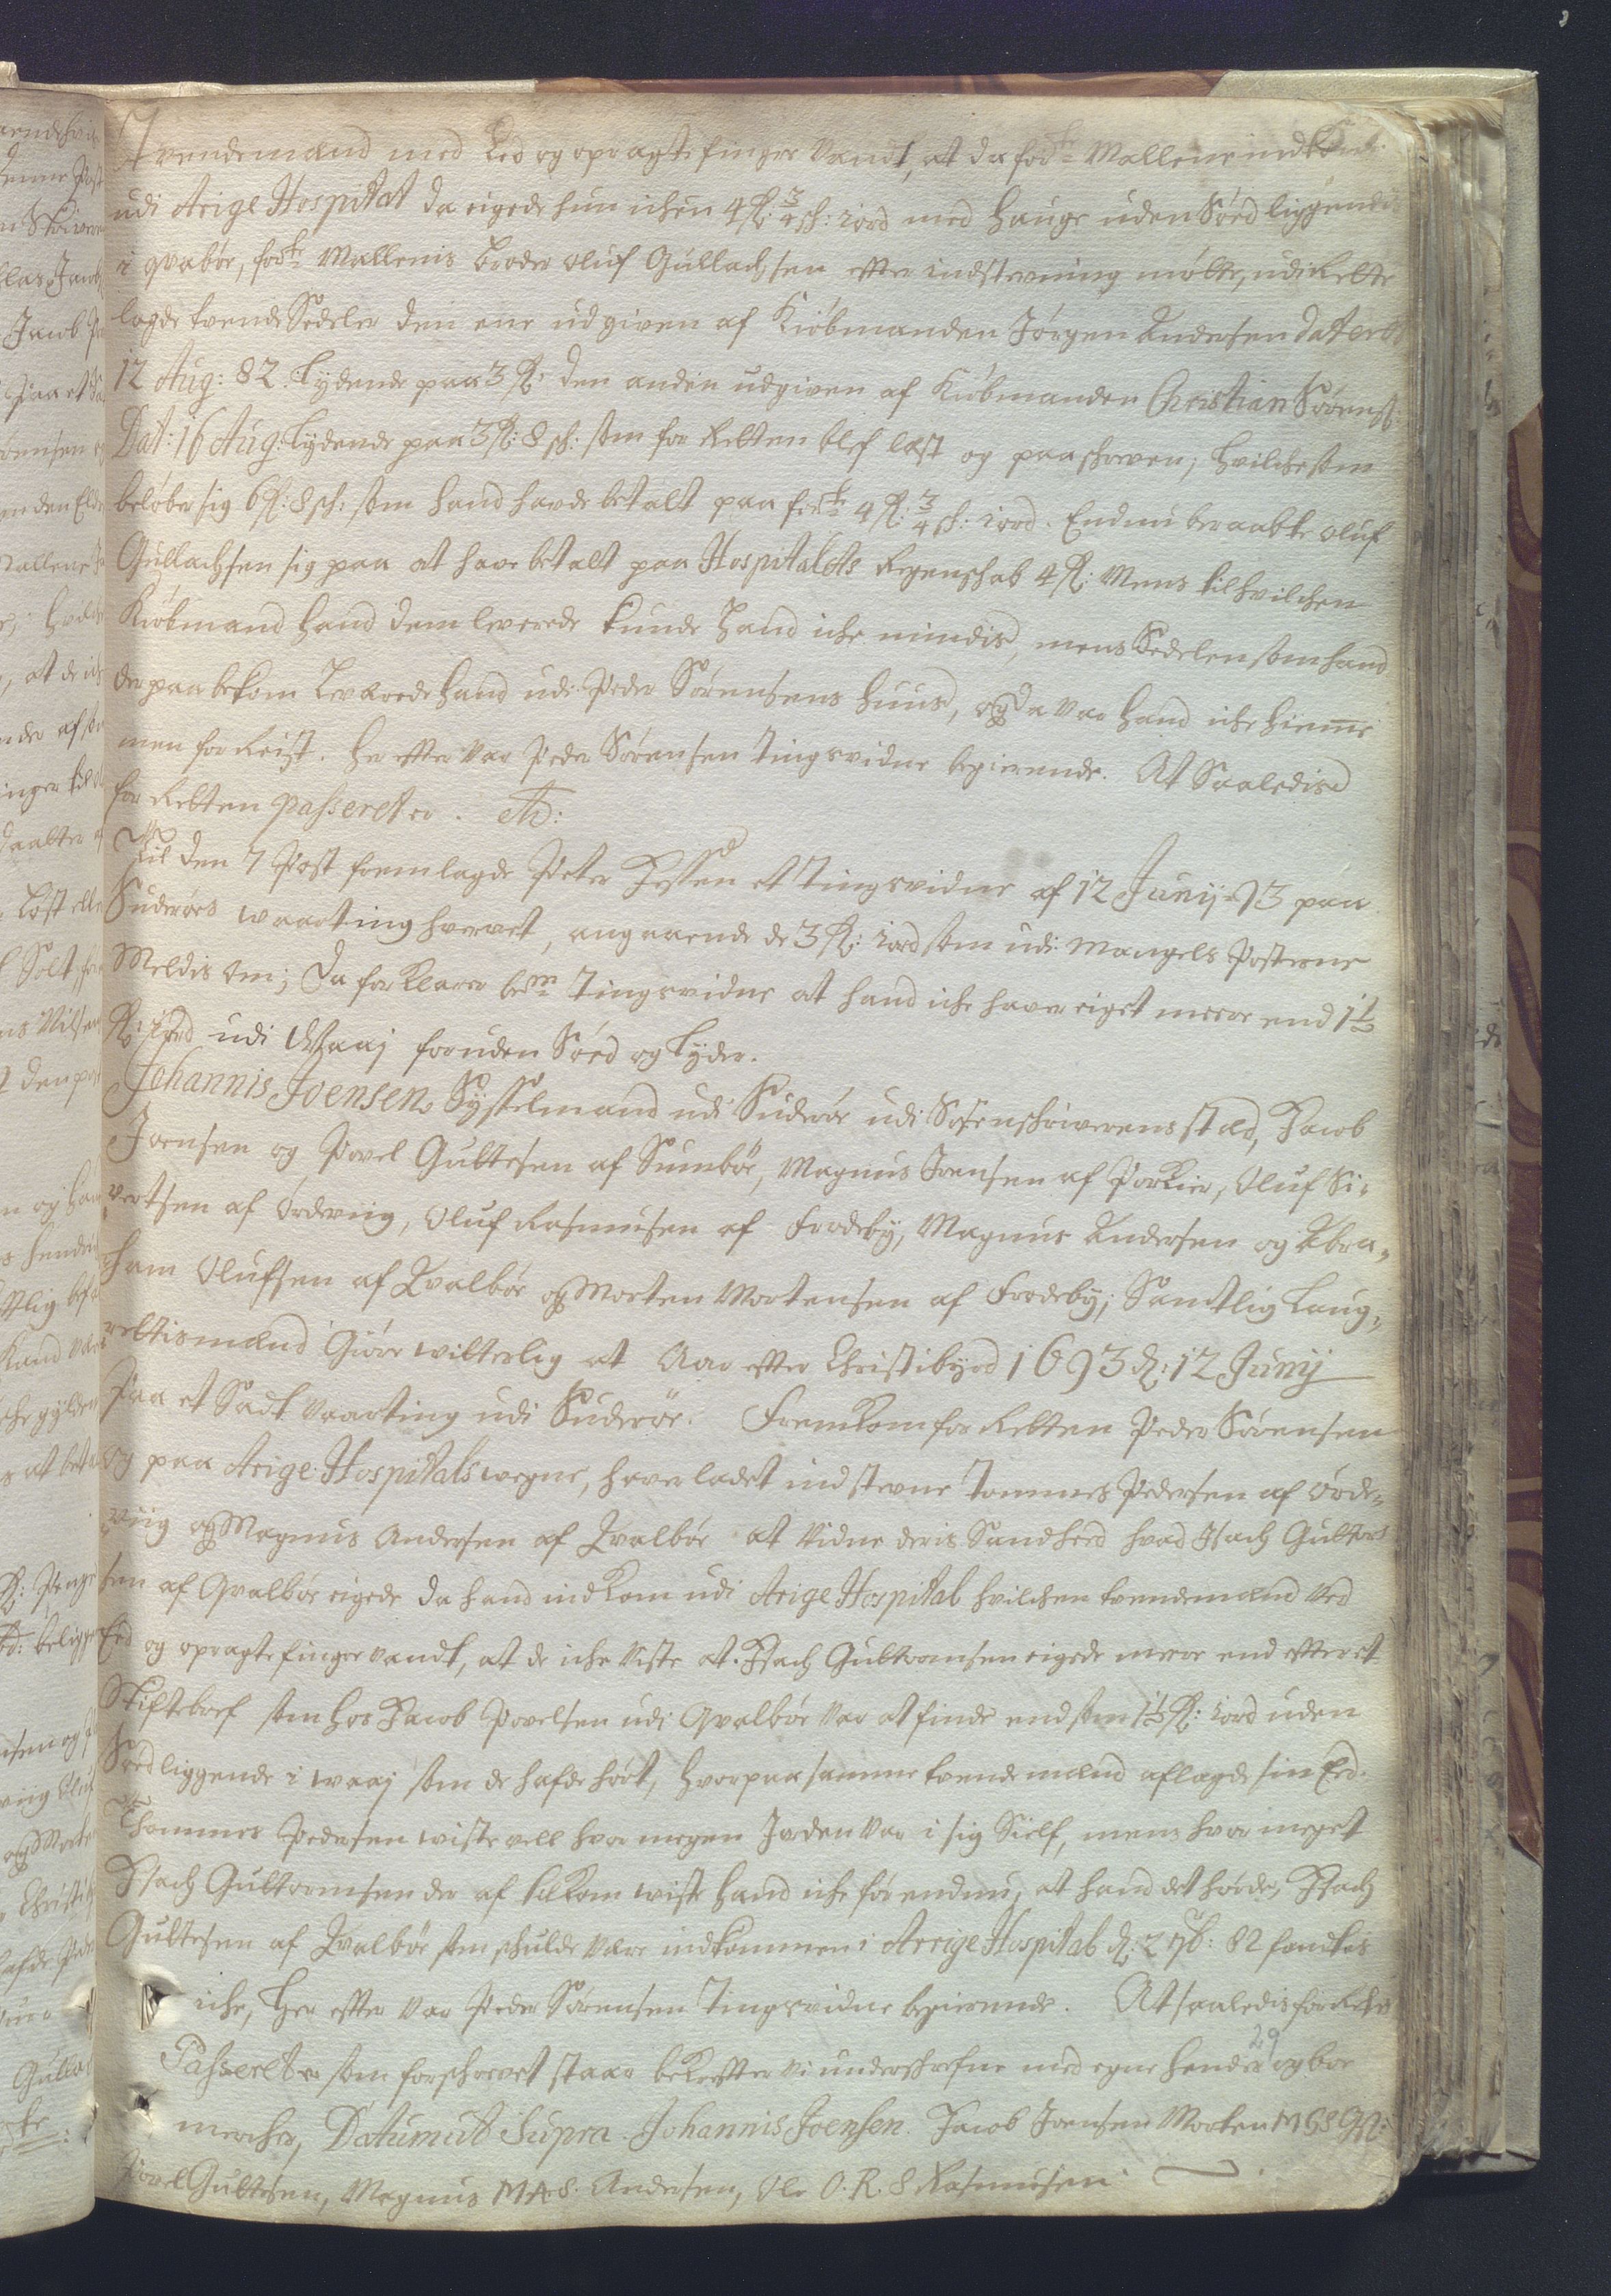 tvendemænd med Eed og opragte finger vandt, at da forne Mallene indkom
udi Arige Hospital da eigede hun ichun 4 R: 3/4 sk: iord med hauge uden Sæd liggende
i qvalbøe, forne Mallenis broder oluf Gullachsen efter indstevning møtte, udi Rette
lagde tvende Sedeler den ene udgiven af Kiøbmanden Jørgen Andersen daterit
12 Aug: 82. lydende paa 3 R: den anden udgiven af Kiøbmanden Christian Sørens:
Dat: 16 Aug: lydende paa 3 R: 8 sk: som for Retten blef læst og paaschreven; hvilche som
beløber sig 6 R: 8 sk: som hand hafde betalt paa forne 4 R: 3/4 sk: iord. Endnu beraabte oluf
Gullachsen sig paa at have betalt paa Hospitalets Regenschab 4 R: Mens til hvilchen
Kiøbmand hand dem leverede kunde hand iche mindis, mens Sedelen som hand
der paa bekom leverede hand udi Peder Sørensens huus, og da var hand iche hiemme
men forreist. her efter var Peder Sørensen Tingsvidne begierende. At Saaledis
for Retten passeret er.
Til den 7 Post fremlagde Peter Hessen et Tingsvidne af 12 Junij 93 paa
Suderøes waarting hvervet, angaaende de 3 R: iord som udi Mangels Posterne
Meldis om; Da forklarer bem: Tingsvidne at hand iche haver eiget meere end 1 1/2
R: iord udi Waaj foruden Sæd og lyder.
Johannis Joensen Sysselmand udi Suderøe udi Sorenschriverens sted, Jacob
Joensen og Povel Guttesen af Sumbøe, Magnus Joensen af Porkier, Oluf Si-
vertsen af Ordeviig, Oluf Rasmusen af Frodeby, Magnus Andersen og Abra-
ham Olufsen af Qvalbøe og Morten Mortensen af Frodeby; Samtlig Laug-
rettismænd Giøre witterlig at Aar efter Christi byrd 1693 d: 12 Junij
Paa et Sædt Vaarting udi Suderøe. Fremkom for Retten Peder Sørensen
og paa Arige Hospitals wegne, haver ladet indstevne Tommes Pedersen af Orde-
viig og Magnus Andersen af Qvalbøe at Vidne deris Sandhed hvad Isach Guttorm
sen af Qvalbøe eigede da hand indkom udi Arige Hospital hvilchen tvendemænd ved
Eed og opragte finger vandt, at de iche viste at Isach Guttormsen eigede meere end efter et
Skiftebref som hos Jacob Povelsen udi Qvalbøe var at finde end som 1 1/2 R: iord uden
Sæd liggende i waaj som de hafde hørt, hvorpaa samme tvende mænd aflagde sin Eed.
Thommes Pedersen wiste vell hvor megen Jorden var i sig Sielf, mens hvor meget
Isach Guttormsen der af tilkom wiste hand iche før endnu, at hand det hørde, Isach
Guttesen af Qvalbøe som schulde være indkommen i Arrige Hospital d: 2 7b: 82 fandtes
iche, her efter var Peder Sørensen Tingsvidne begierende. At saaledis for Retten
29
Passeret er som forschrevet staar bekrefter vi underschrefne med egne hender og boe
mercher, Datum ut Supra. Johannis Joensen. Jacob Joensen Morten
Povel Guttesen, Magnus M.A.S. Andersen, Ole O.R.S Rasmusen